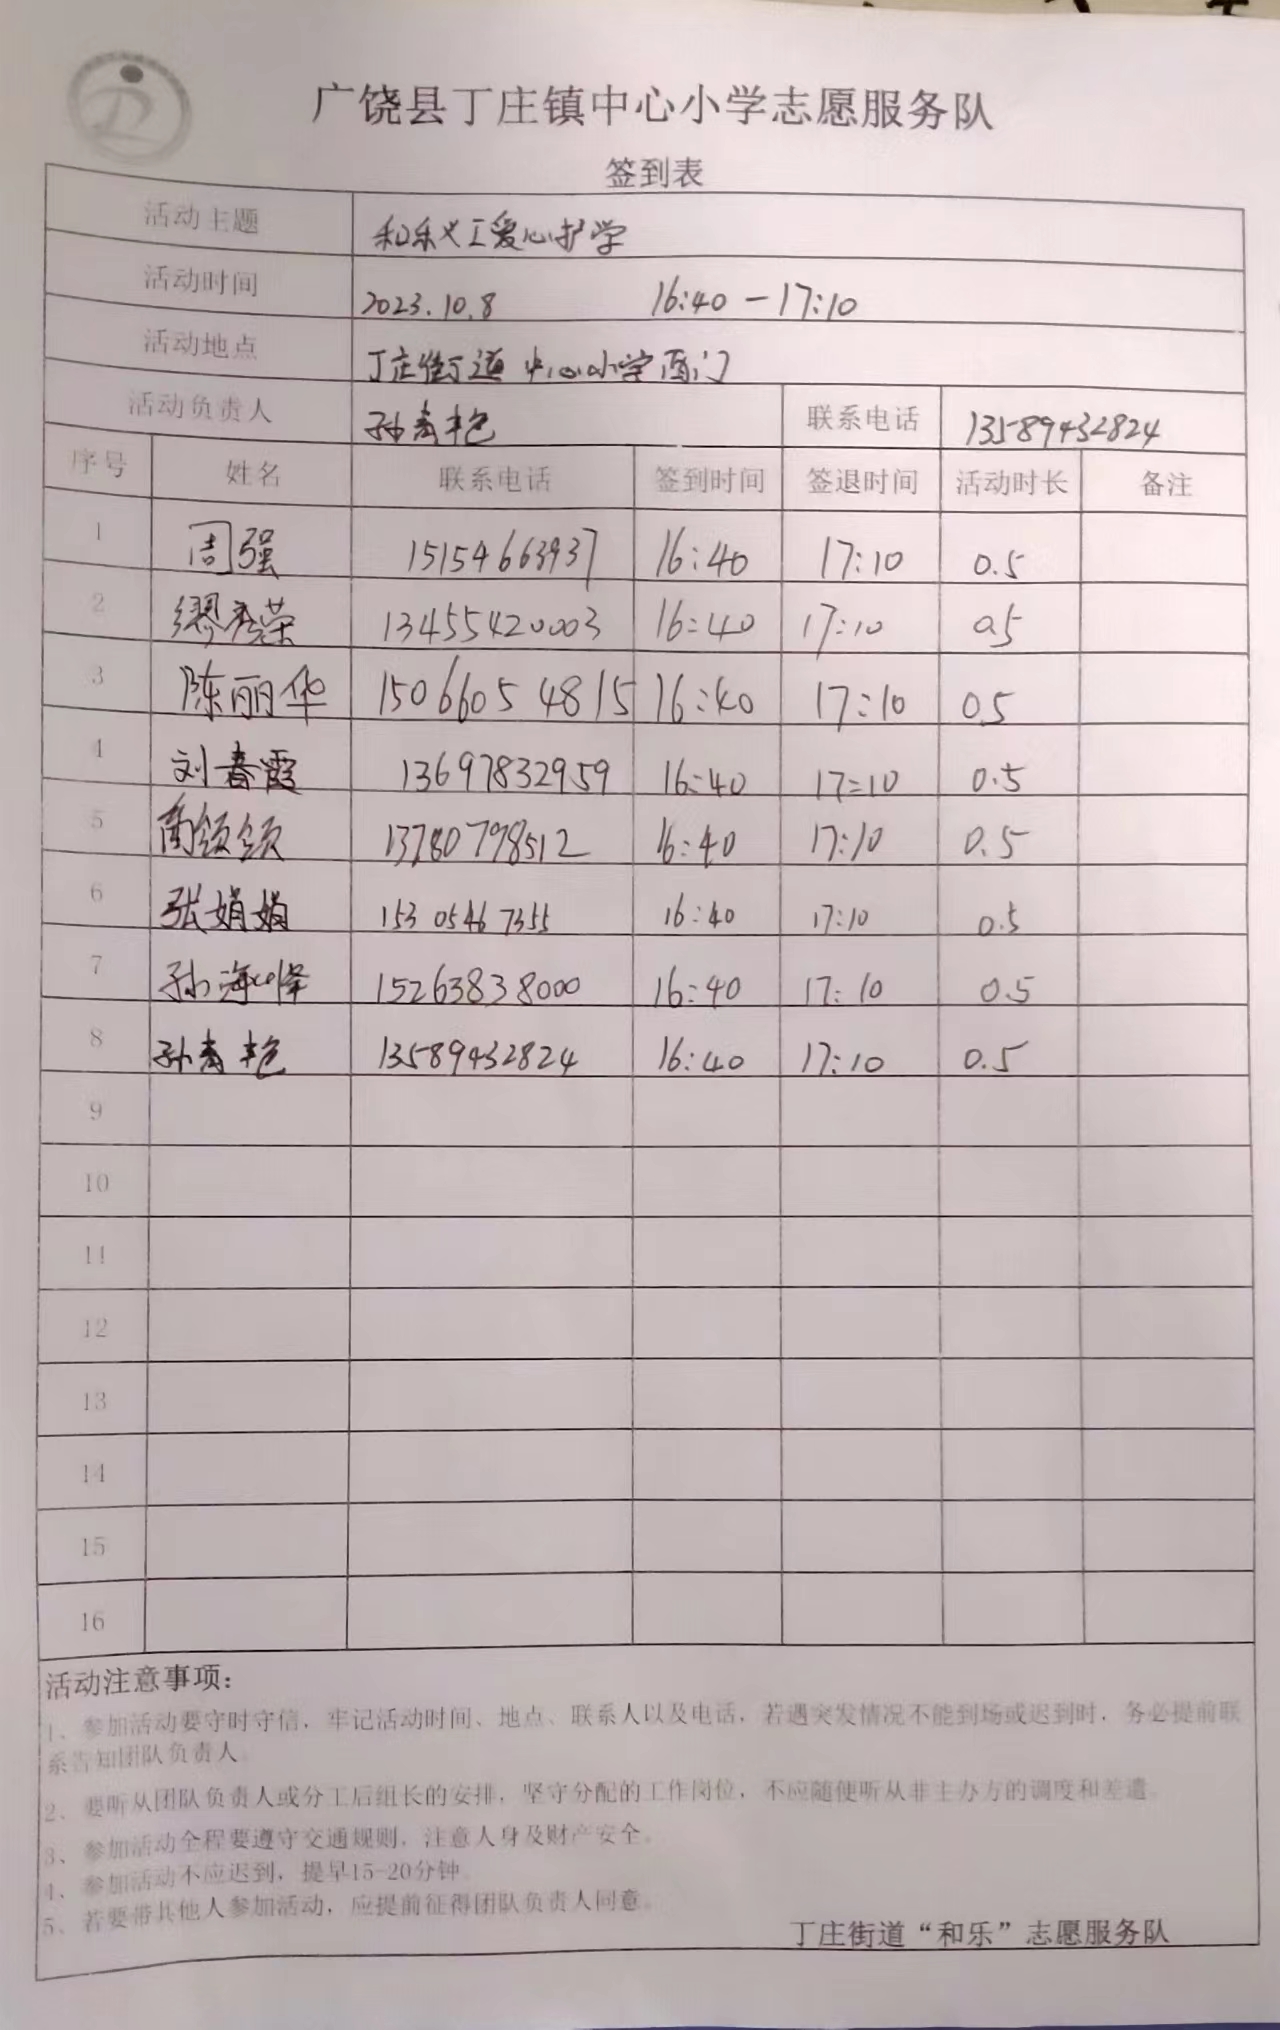 广饶县丁庄镇中心小学志愿服务队
签到表
活动主题 和乐义工爱心护学
活动时间 2023.10.8 16:40-17:10
活动地点 丁庄街道中心小学西门
活动负责人 孙青艳 联系电话 13589432824
序号 姓名 联系电话 签到时间 签退时间 活动时长 备注
1 周强 15154663937 16:40 17:10 0.5
2 缪秀荣 13455420003 16:40 17:10 0.5
3 陈丽华 15066054815 16:40 17:10 0.5
4 刘春霞 13697832959 16:40 17:10 0.5
5 13780798512 16:40 17:10 0.5
6 张娟娟 15305467355 16:40 17:10 0.5
7 孙海峰 15263838000 16:40 17:10 0.5
8 孙青艳 13589432824 16:40 17:10 0.5
9
10
11
12
13
14
15
16
活动注意事项：
1、参加活动要守时守信，牢记活动时间、地点、联系人以及电话，若遇突发情况不能到场或迟到时，务必提前联
系告知团队负责人。
2、要听从团队负责人或分工后组长的安排，坚守分配的工作岗位，不应随便听从非主办方的调度和差遣。
3、参加活动全程要遵守交通规则，注意人身及财产安全。
4、参加活动不应迟到，提早15-20分钟。
5、若要带其他人参加活动，应提前征得团队负责人同意。
丁庄街道“和乐”志愿服务队